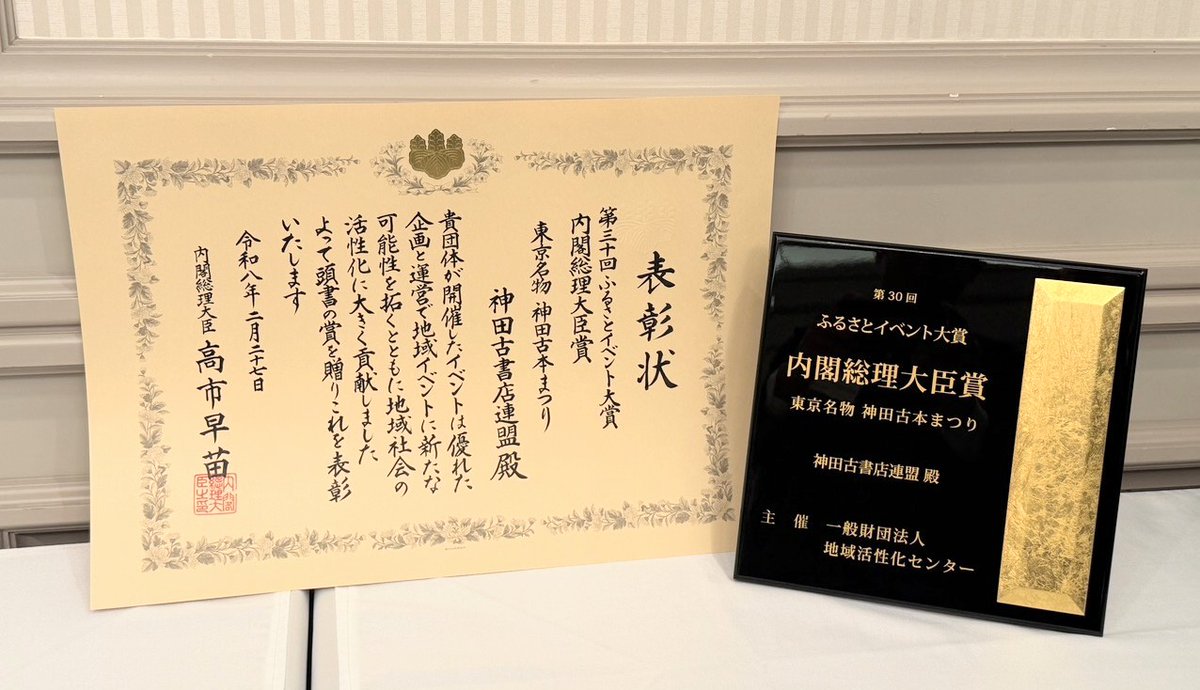 表彰状
第三十回 ふるさとイベント大賞
内閣総理大臣賞
東京名物 神田古本まつり
神田古書店連盟殿
貴団体が開催したイベントは優れた
企画と運営で地域イベントに新たな
可能性を拓くとともに地域社会の
活性化に大きく貢献しました
よって頭書の賞を贈りこれを表彰
いたします
令和八年二月二十七日
内閣総理大臣 高市早苗
内閣総理大臣之印
第30回
ふるさとイベント大賞
内閣総理大臣賞
東京名物 神田古本まつり
神田古書店連盟 殿
主 催 一般財団法人
地域活性化センター